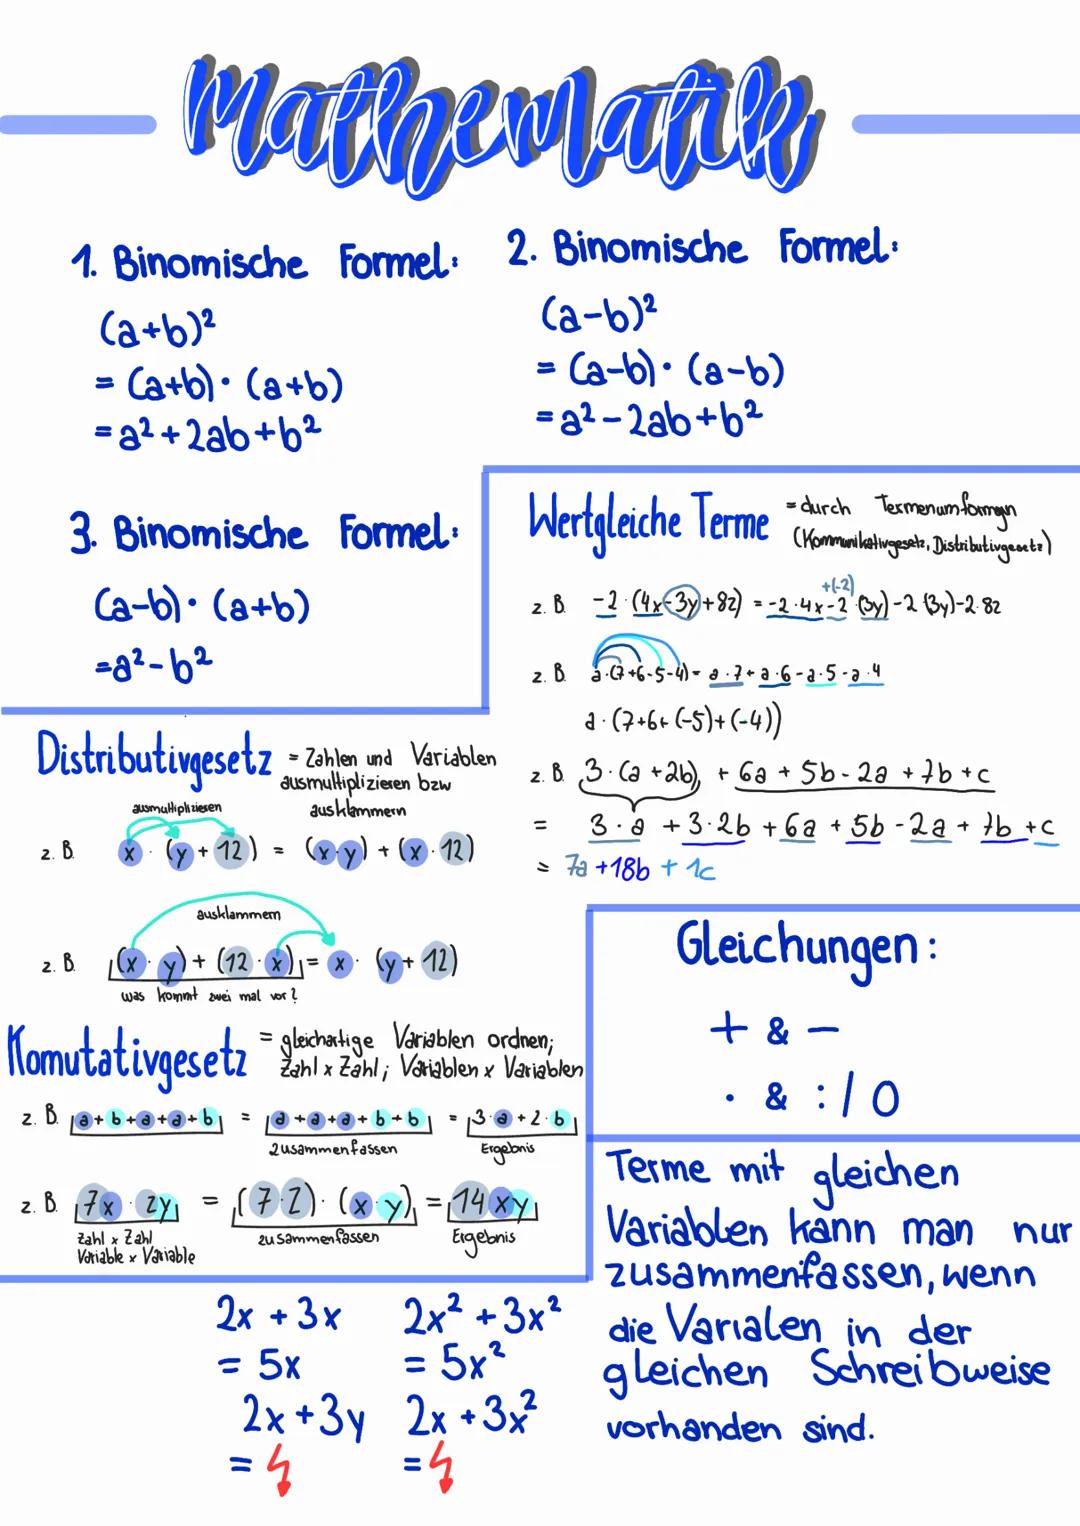 Mathematik
1. Binomische Formel:
(a+b)²
= (a+b)·(a+b)
=a²+2ab+b²
2. Binomische Formel:
(a-b)²
= (a-b)·(a-b)
=a²-2ab+b²
3. Binomische Formel:
(a-b)·(a+b)
=a²-b²
Wertgleiche Terme
=durch Termenumformgn
(Kommunikativgesetz, Distributivgesetz)
+(-2)
z. B. -2·(4x-3y+8z) = -2·4x-2·(3y)-2(3y)-2·8z
z. B. a·(7+6-5-4)= a·7+a·6-a·5-a·4
a·(7+6+(-5)+(-4))
z. B. 3·(a+2b), + 6a + 5b-2a +7b+c
= 3·a +3·2b +6a +5b -2a + 7b +c
= 7a +18b + 1c
Distributivgesetz
= Zahlen und Variablen
ausmultiplizieren bzw
ausklammern
ausmultiplizieren
z. B. x · (y + 12) = (x·y) + (x·12)
ausklammern
z. B. (x·y) + (12·x) = x · (y+12)
was kommt zwei mal vor?
Komutativgesetz
= gleichartige Variablen ordnen;
Zahl x Zahl; Variablen x Variablen
z. B. a+b+a+a+b = a+a+a+b+b = 3·a+2·b
zusammenfassen
Ergebnis
z. B. 7x · 2y = (7·2)·(x·y) = 14xy
Zahl x Zahl
Variable x Variable
zusammenfassen
Ergebnis
Gleichungen:
+ & -
· & :/0
2x +3x
= 5x
2x+3y
=
2x²+3x²
= 5x²
2x+3x²
=
Terme mit gleichen
Variablen kann man nur
zusammenfassen, wenn
die Varialen in der
gleichen Schreibweise
vorhanden sind.